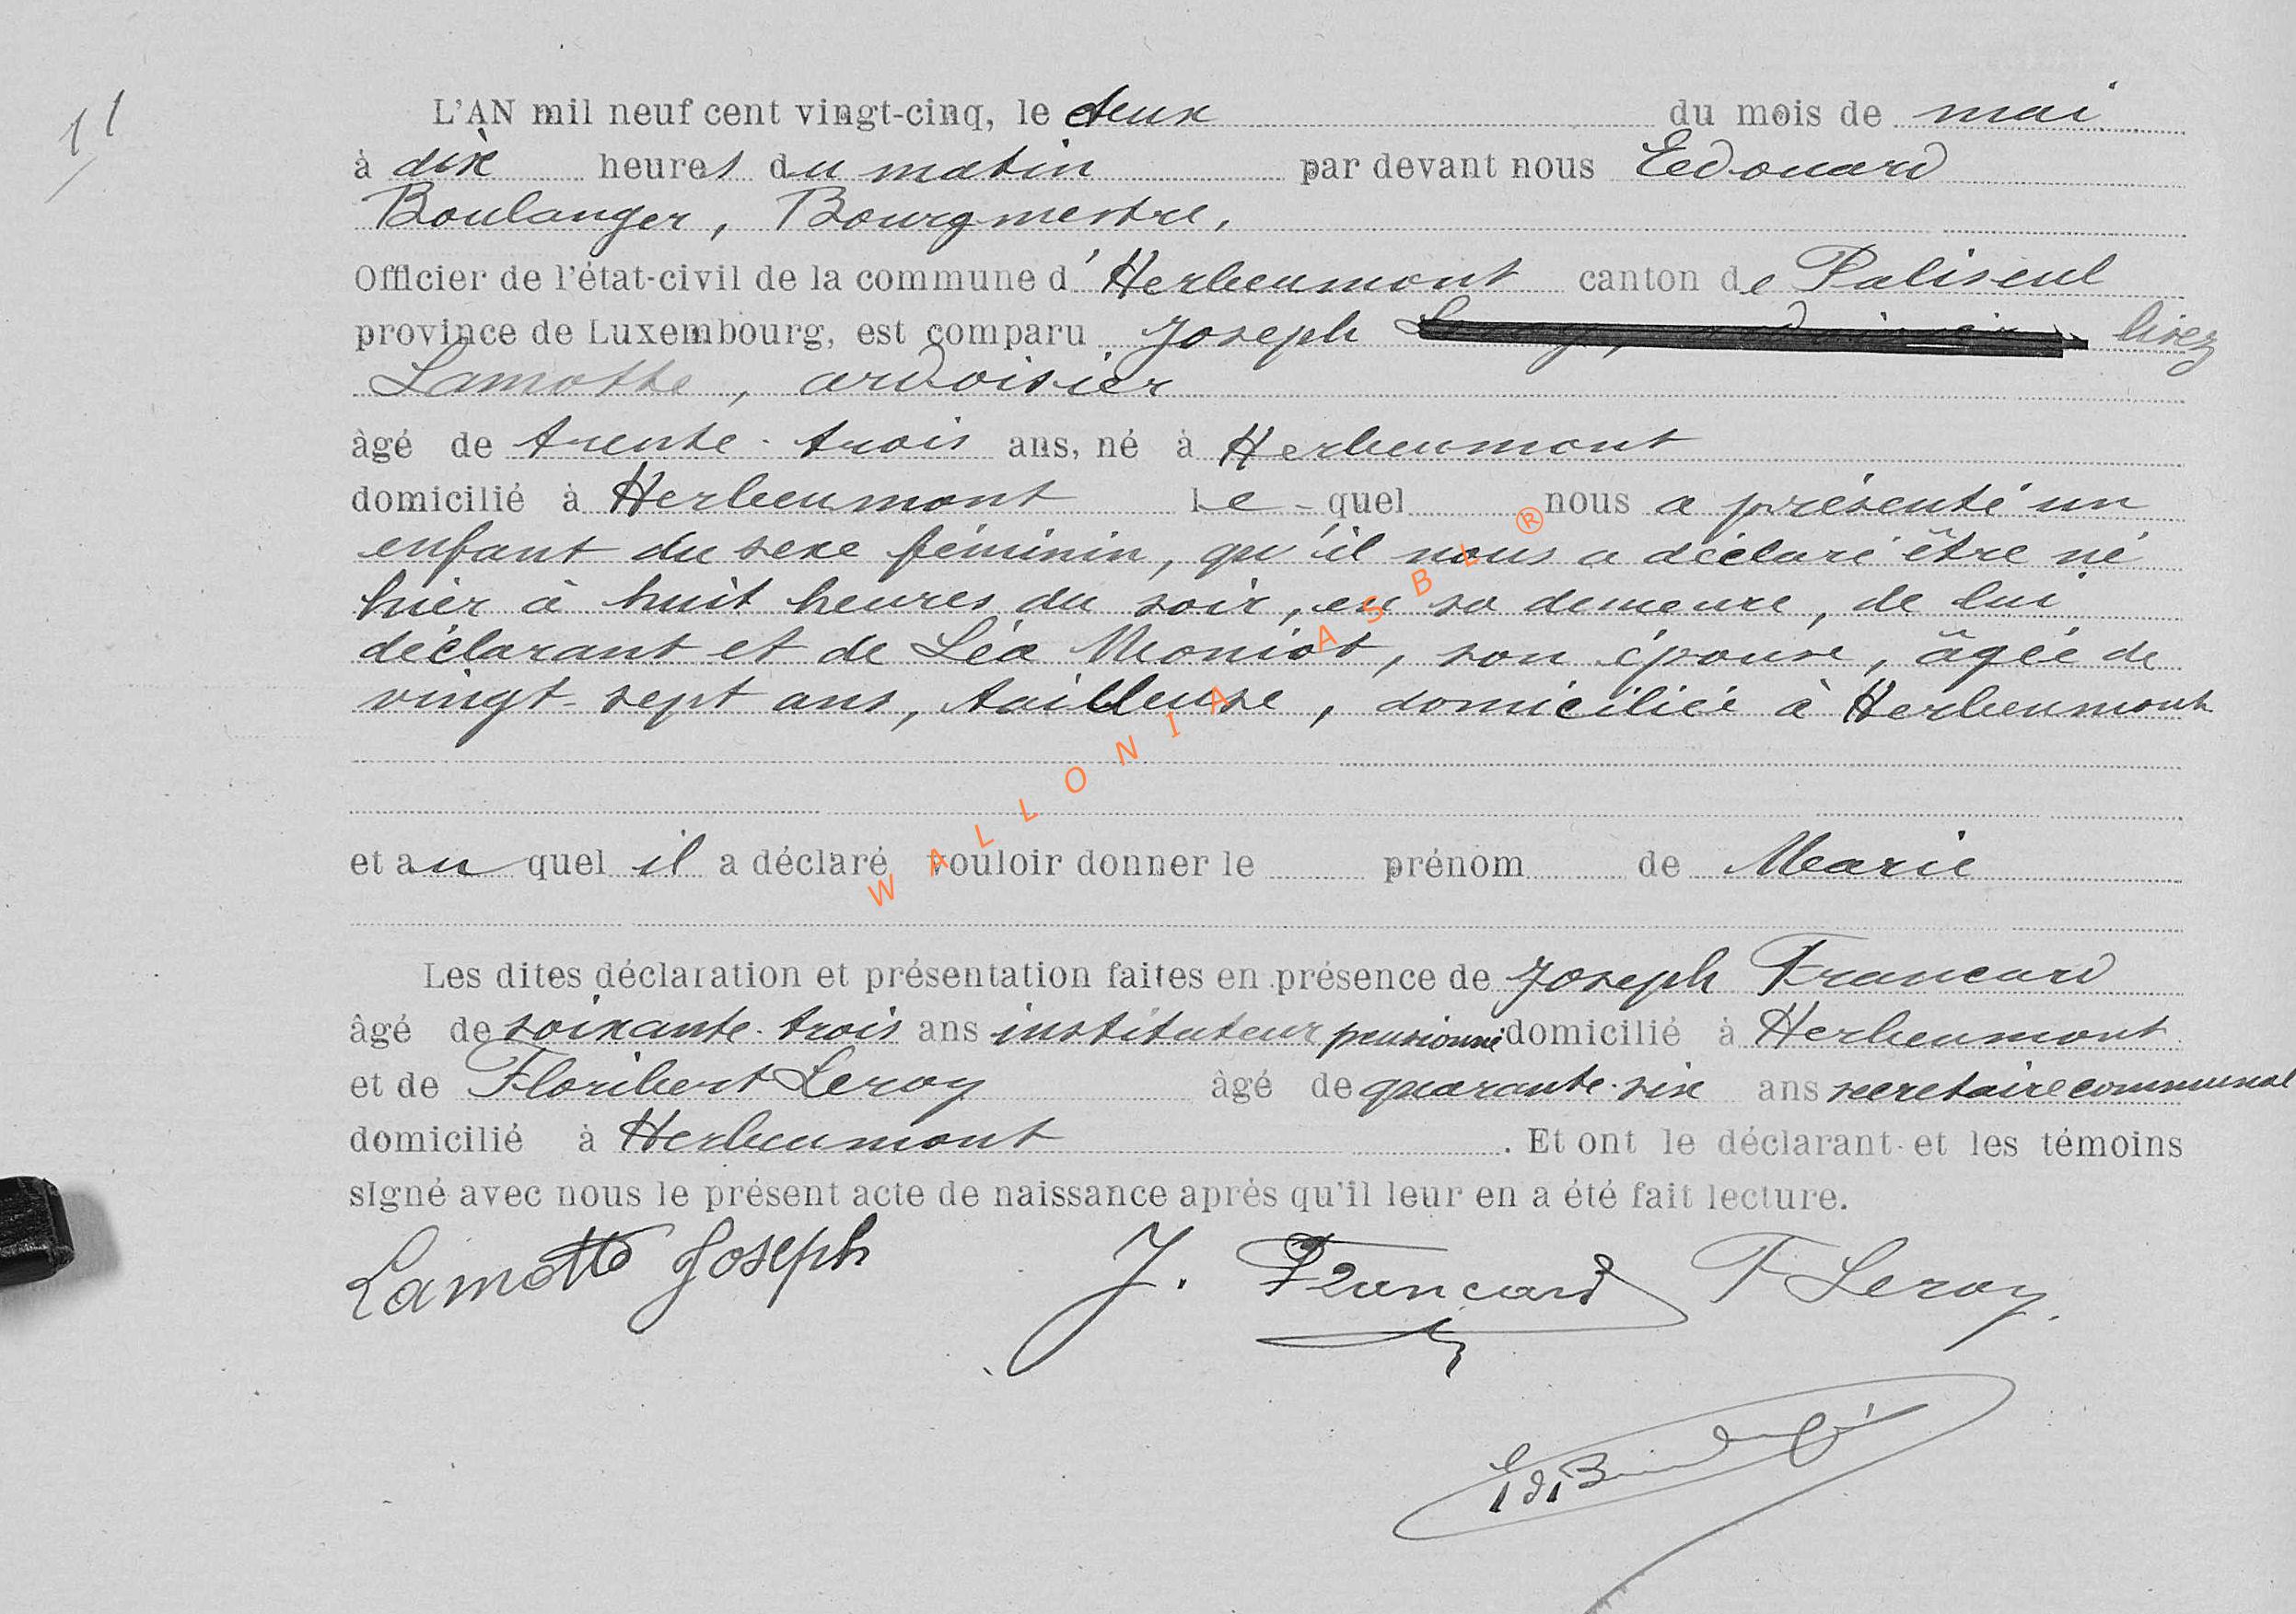 11
L'AN mil neuf cent vingt-cinq, le deux du mois de mai
à dix heures du matin par devant nous Edouard
Boulanger, Bourgmestre,
Officier de l'état-civil de la commune d'Herbeumont canton de Paliseul
province de Luxembourg, est comparu Joseph lisez
Lamotte, ardoisier
âgé de trente-trois ans, né à Herbeumont
domicilié à Herbeumont Le-quel nous a présenté un
enfant du sexe féminin, qu'il nous a déclaré être né
hier à huit heures du soir, en sa demeure, de lui
déclarant et de Léa Moniot, son épouse, âgée de
vingt-sept ans, tailleuse, domiciliée à Herbeumont
et au quel il a déclaré vouloir donner le prénom de Marie
Les dites déclaration et présentation faites en présence de Joseph Francard
âgé de soixante-trois ans instituteur pensionné domicilié à Herbeumont
et de Floribert Leroy âgé de quarante-six ans secretaire communal
domicilié à Herbeumont. Et ont le déclarant et les témoins
signé avec nous le présent acte de naissance après qu'il leur en a été fait lecture.
Lamotte Joseph J. Francard F Leroy.
WALLONIA ASBL ®